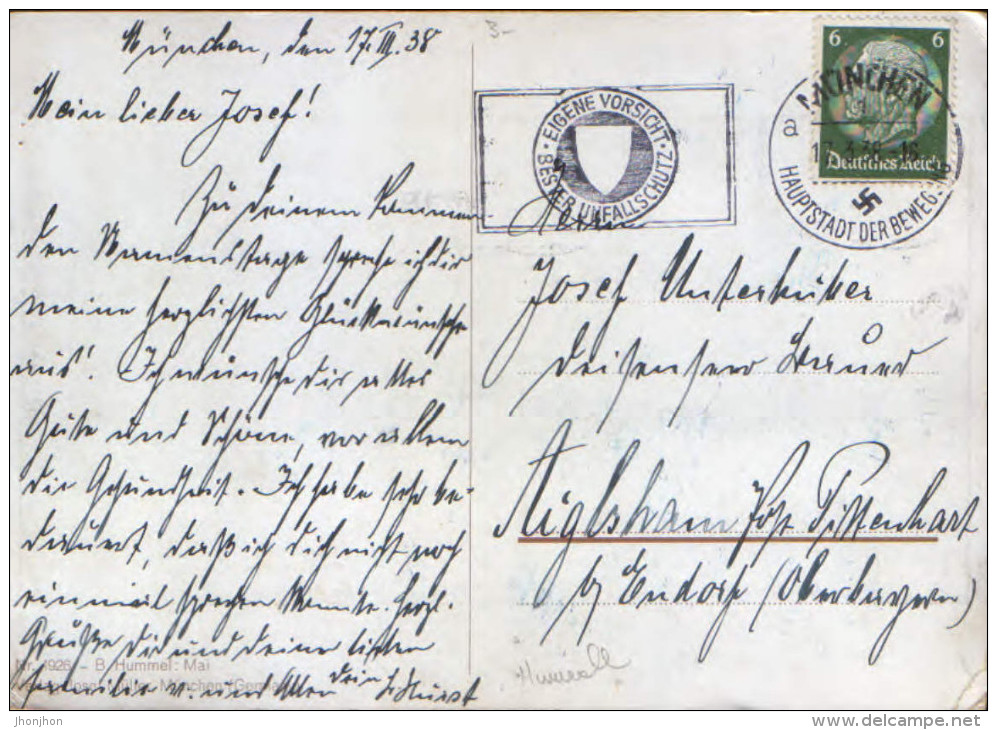 München, den 17.III.38
Mein lieber Josef!
Zu deinem kommen
den Namenstage spreche ich dir
meine herzlichsten Glückwünsche
aus! Ich wünsche dir alles
Gute und Schöne, vor allem
die Gesundheit. Ich habe sehr be-
dauert, daß ich dich nicht noch
einmal sprechen konnte. Herzl.
Grüße dir und deiner lieben
Familie v. uns Allen dein
Nr. 4926 – B. Hummel: Mai
EIGENE VORSICHT
BESTER UNFALLSCHUTZ
6 6
Deutsches Reich
MÜNCHEN
a
17.3.38
HAUPTSTADT DER BEWEG.
Herrn
Josef Unterhuber
Bauer
Aiglsham Post Pittenhart
b/ Endorf (Oberbayern)
Hummel
3-
jhonjhon
www.delcampe.net